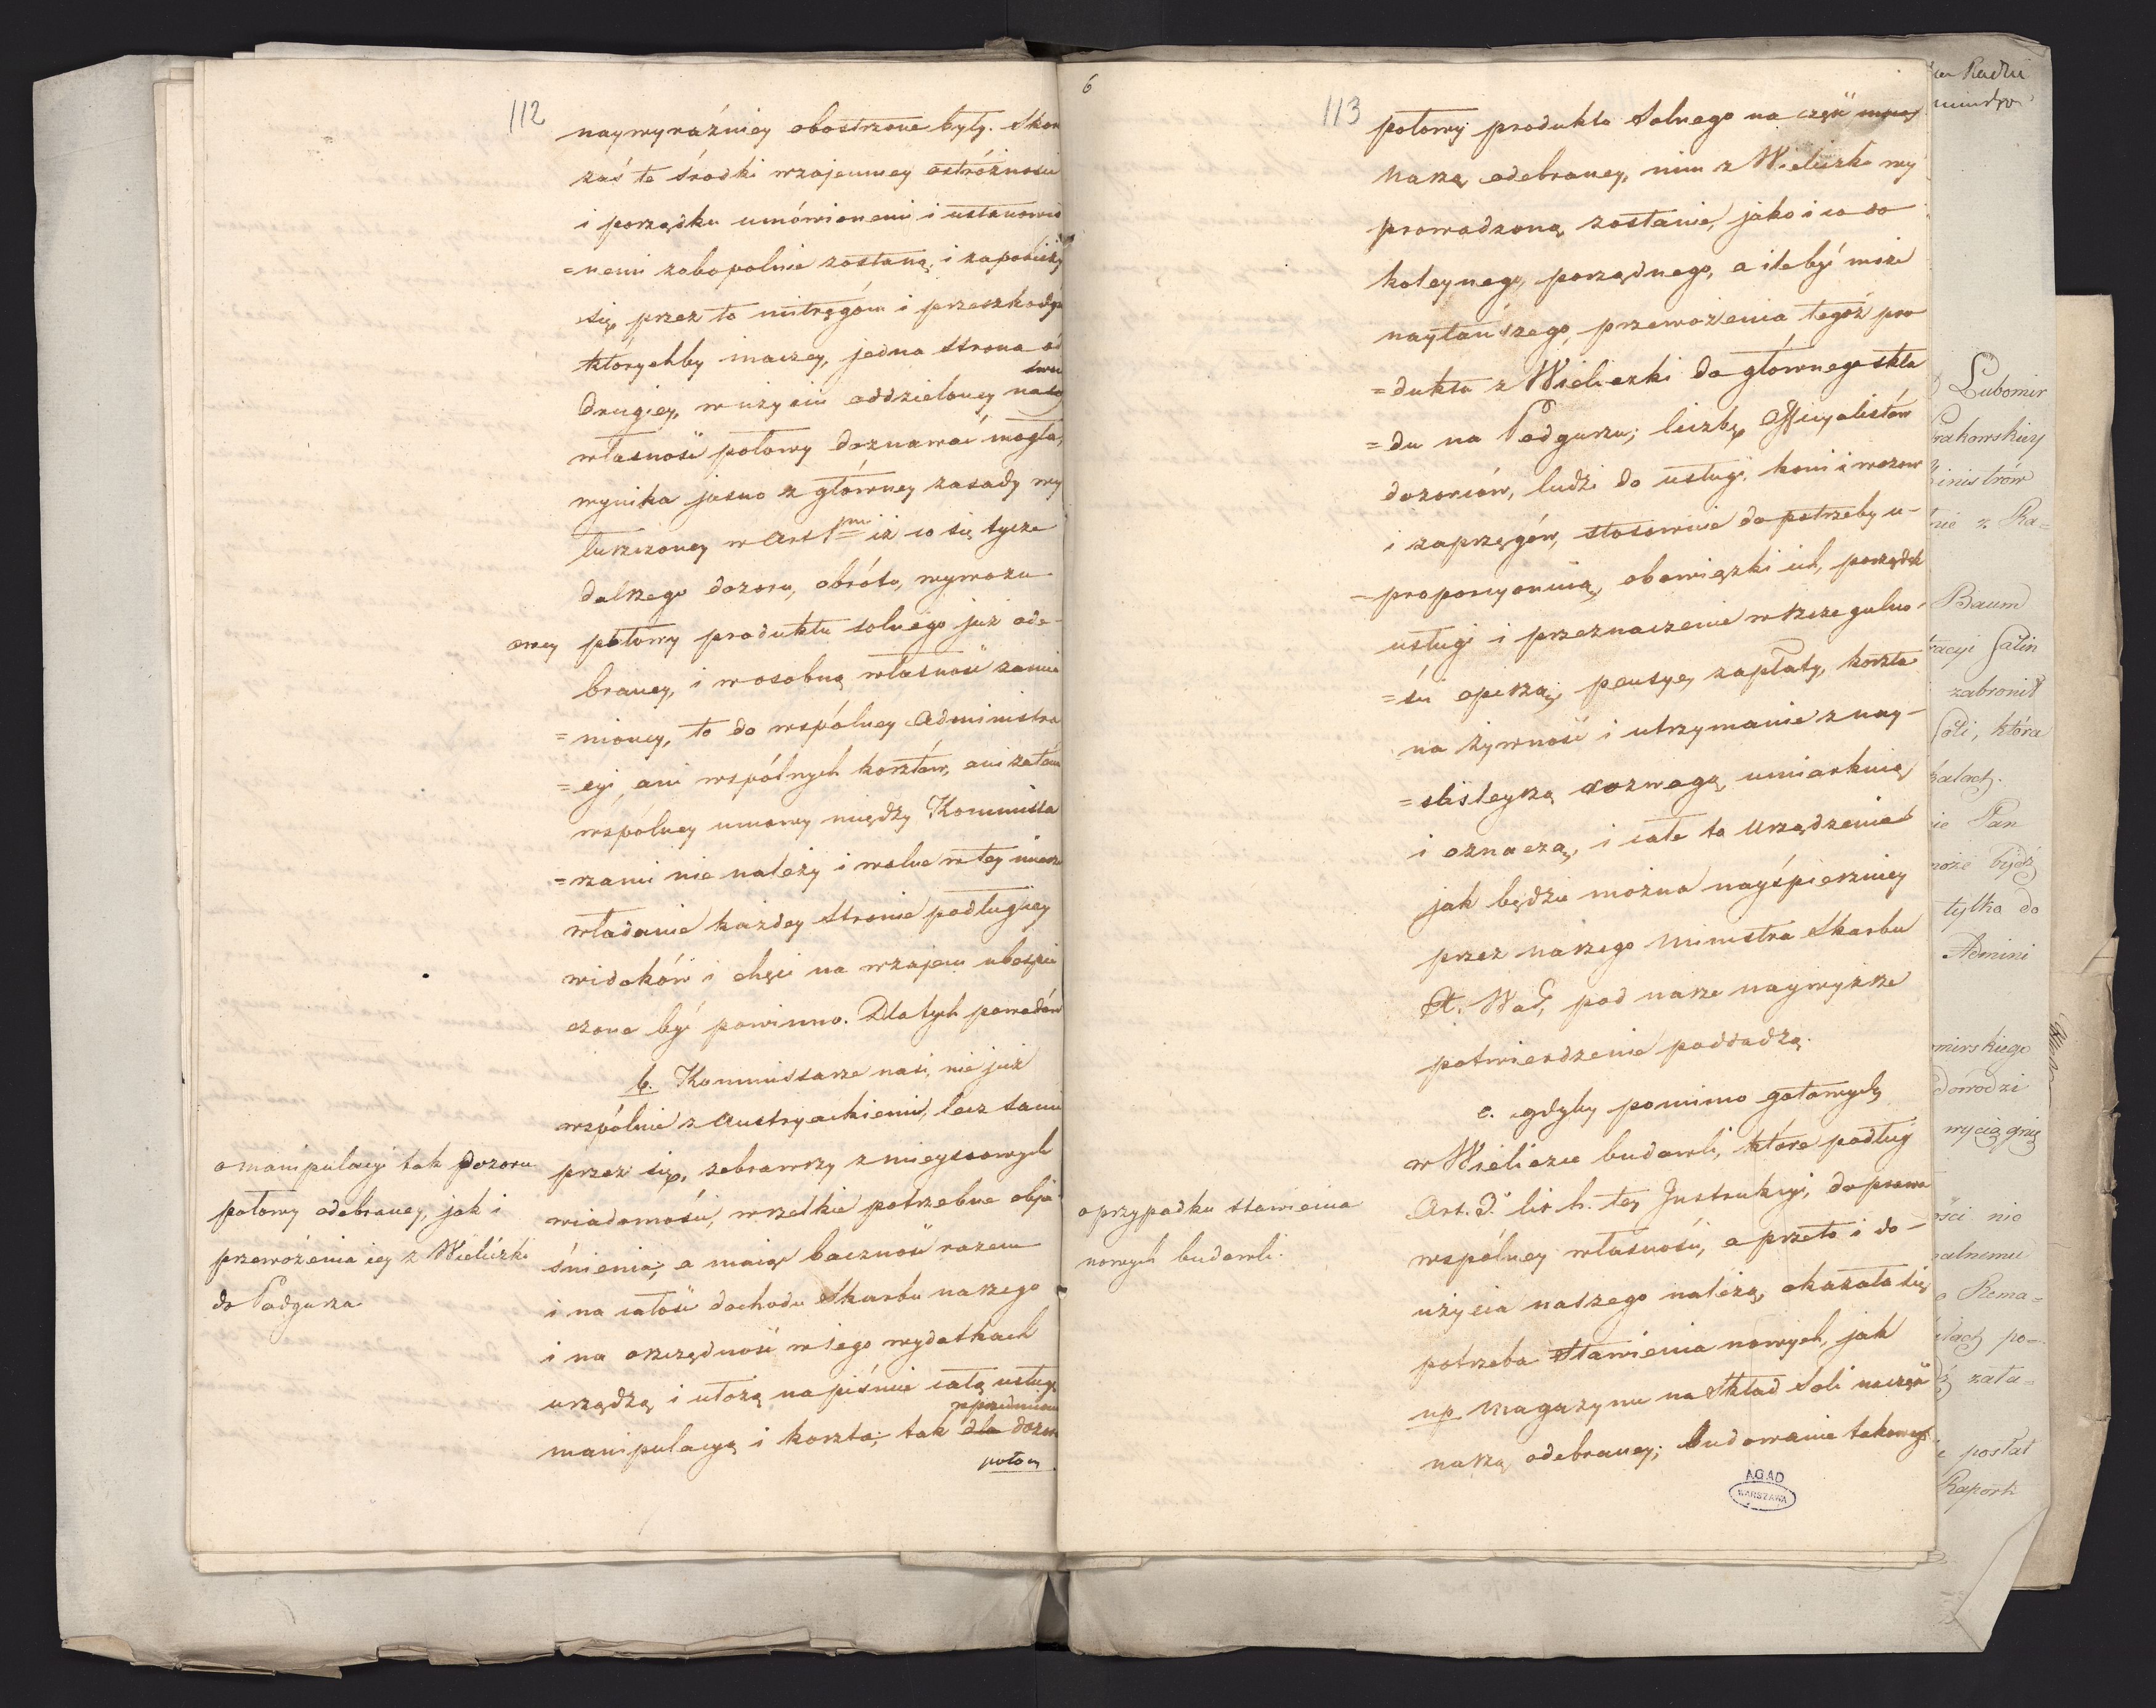 112
naywyraźniey obostrzone były. Skor
zaś te środki wzajemney ostróżności
i porządku umówionemi i ustanowio
=nemi zobopolnie zostaną, i zapobieży
się przez to mitręgóm i przeszkodo
którychby inaczey, jedna strona od
drugiey, w użyciu oddzieloney swey
własność połowy doznawać mogła,
wynika jasno z głównéy zasady wy
łuszczoney w Art 1mo iż co się tycze
dalszego dozoru, obrótu, wywozu
owey połowy produktu solnego już ode-
braney, i w osobną własność zamie
=nioney, to do wspólney Administra
=cyi, ani wspólnych kosztów, ani zatém
wspólney umowy między Kommissa
=rzami nie należy i wolne w tey mierze
władanie każdey stronie podług iey
widoków i chęci na wzajem ubespie
czone być powinno. Dla tych powodów
b. Kommissarze nasi, nie już
wspólnie z Austryackiemi, lecz sami
przez się, zebrawszy z mieyscowych
wiadomości, wszelkie potrzebne obja
śnienia; a maiąc baczność razem
i na całość dochodu Skarbu naszego
i na oszczędność w iego wydatkach
urządzą i ułożą na piśmie całą usługę
manipulacyą i koszta; tak dla dozoru
połow
o manipulacyi tak dozoru
połowy odebraney, jak i
przewożenia iey z Wieliczki
do Podgurza
6
113
połowy produktu Solnego na część
naszą odebraney, nim z Wieliczki wy
prowadzoną zostanie, jako i co do
koleynego, porządnego, a ile być może
naytańszego, przewożenia tegoż pro
=duktu z Wieliczki do głównego skła
=du na Podgurzu; liczbę Officyalistów
dozorców, ludzi do usługi, koni i wozow
i zaprzęgów, stosownie do potrzeby u-
=proporcyonuią, obowiązki ich, porządek
usługi i przeznaczenie w szczegulno-
=ści opiszą, pensye, zapłaty, koszta
na żywność i utrzymanie z nay-
=ściśleyszą rozwagą umiarkuią
i oznaczą, i całe to Urządzenie
jak będzie można nayśpieszniey
przez naszego Ministra Skarbu
X. War., pod nasze naywyższe
potwierdzenie poddadzą.
c. gdyby pomimo gotowych
w Wieliczce budowli, które podług
Art. 2. lit. h. tey Instrukcyi, do prawa
wspólney własności, a przeto i do-
użycia naszego należą, okazała się
potrzeba Stawienia nowych, jak
np. Magazynu na Skład Soli na część
naszą odebraney; budowanie takowego
o przypadku stawienia
nowych budowli.
AGAD
WARSZAWA
Lubomir
Krakowskiey
inistrów
nie z Ra=
Baum
racyi Salin
zabronił
Soli, która
kalach.
nie Pan
może bydź
tylko do
Admini
omirskiego
dowodzi
wyciągnię
ości nie
alnemu
o Rema=
kach po=
zała=
posłał
Raport